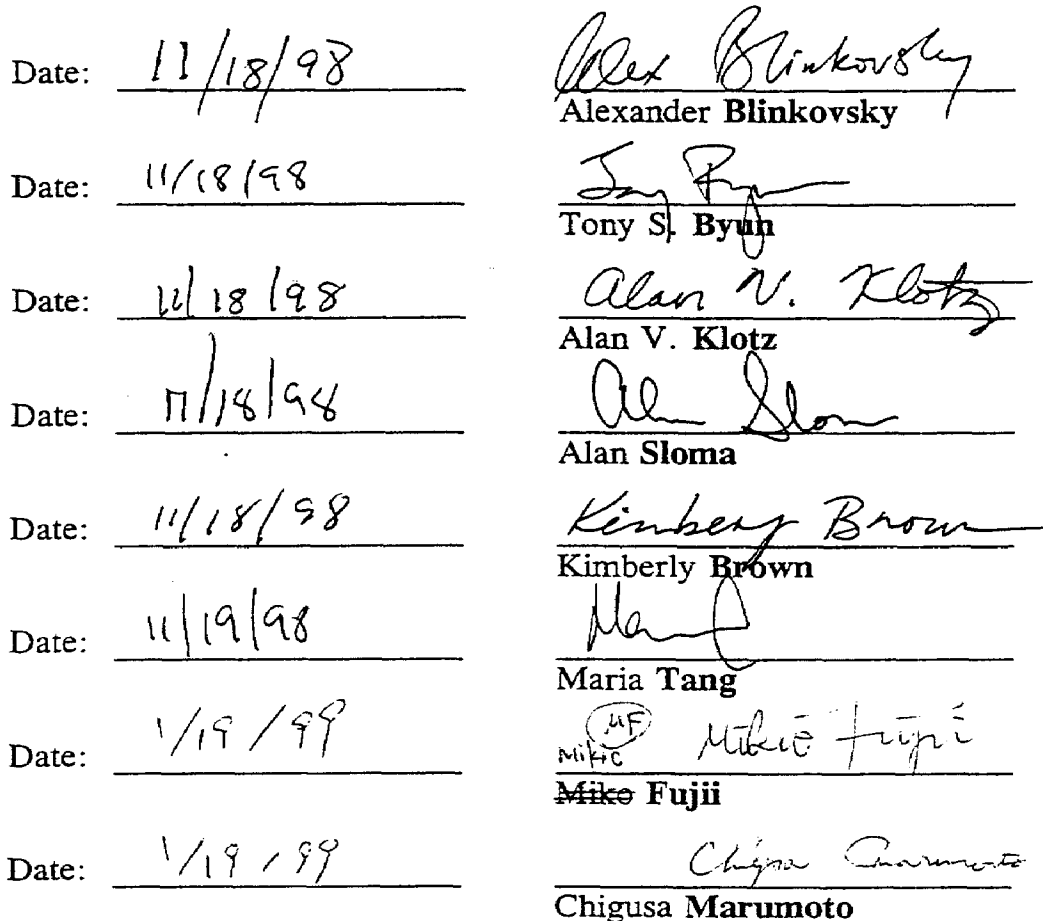 Date: 11/18/98 Alex Blinkovsky
Alexander Blinkovsky
Date: 11/18/98
Tony S. Byun
Date: 11/18/98 Alan V. Klotz
Alan V. Klotz
Date: 11/18/98 Alan Sloma
Alan Sloma
Date: 11/18/98 Kimberly Brown
Kimberly Brown
Date: 11/19/98
Maria Tang
Date: 1/19/99 MF Mikie Fujii
Mikie
Miko Fujii
Date: 1/19/99 Chigusa Marumoto
Chigusa Marumoto